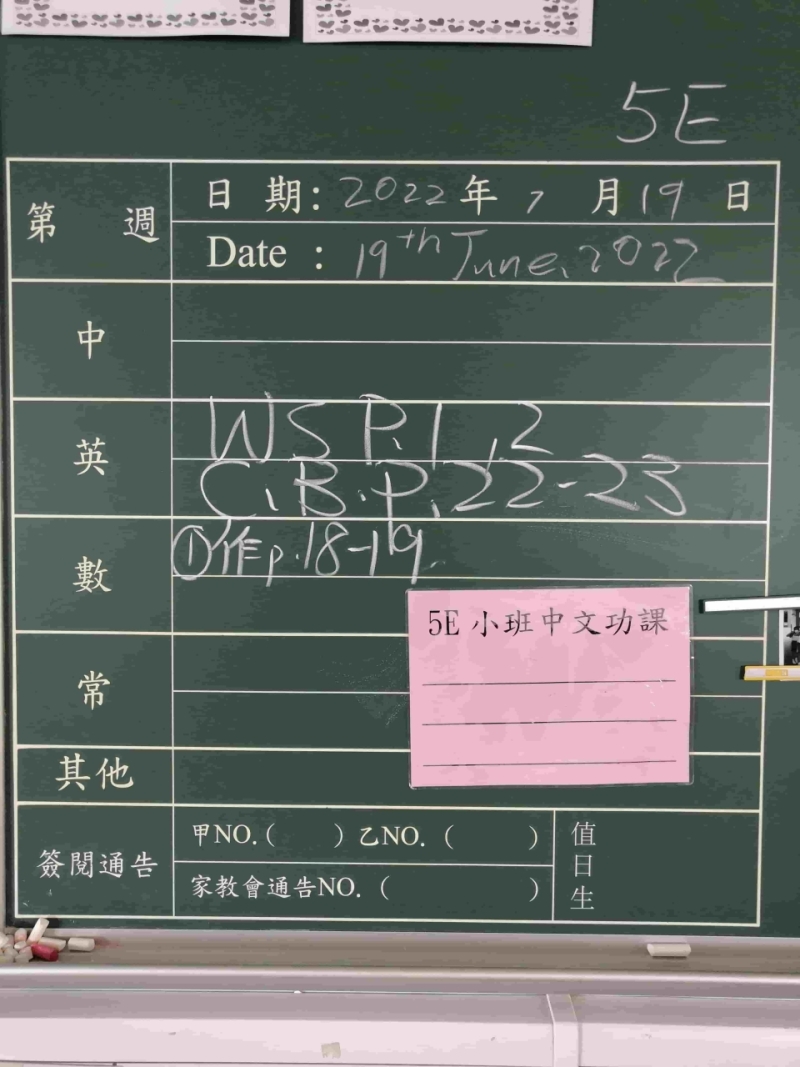 5E
第 週
日 期: 2022 年 7 月 19 日
Date : 19th June, 2022
中
英
WS P.1,2
C.B.P.22-23
數
①作p.18-19.
5E 小班中文功課
常
其他
簽閱通告
甲NO.( ) 乙NO. ( )
家教會通告NO. ( )
值日生